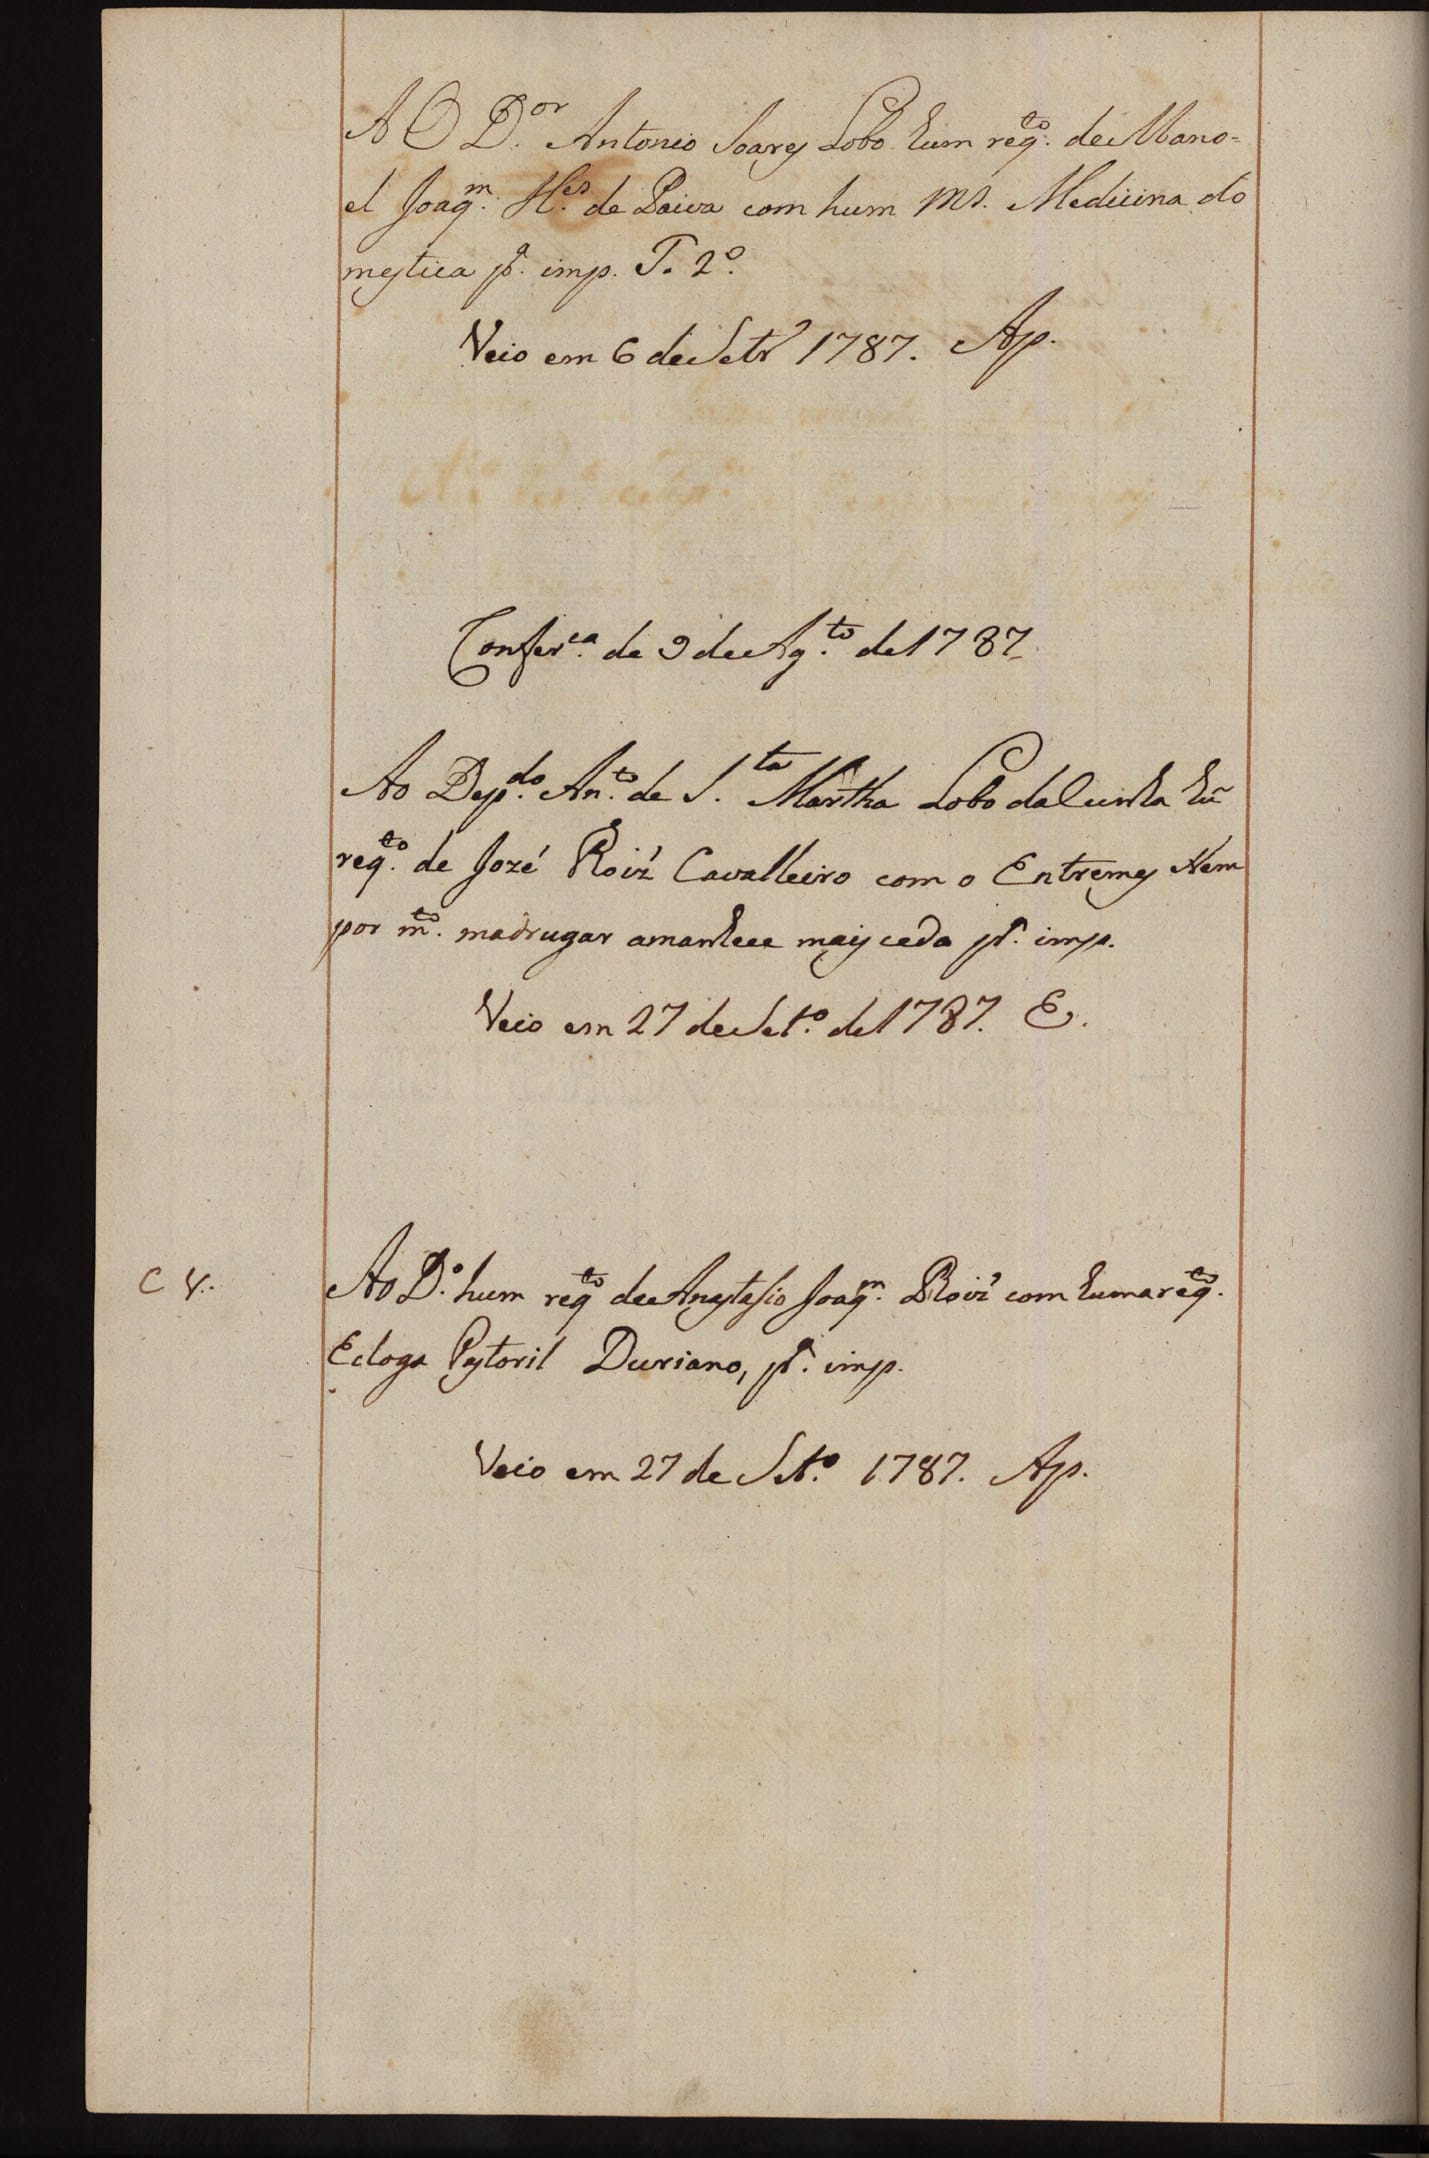 AO D.or Antonio Soares Lobo hum req.to de Mano-
el Joaq.m H.es de Paiva com hum Ms. Medicina do
mestica p.a imp. T. 2.º
Veio em 6 de Setr 1787. Ap.
Confer.ca de 9 de Ag.to de 1787
Ao Dep.do An.to de S.ta Martha Lobo da Cunha hũ
req.to de Jozé Roiz' Cavalleiro com o Entremes Nem
por m.to madrugar amanhece mais cedo p.a imp.
Veio em 27 de Set.º de 1787. E.
C
Ao D.º hum req.to de Anastasio Joaq.m Roiz' com huma req.to
Ecloga Pastoril Duriano, p.a imp.
Veio em 27 de Set.º 1787. Ap.